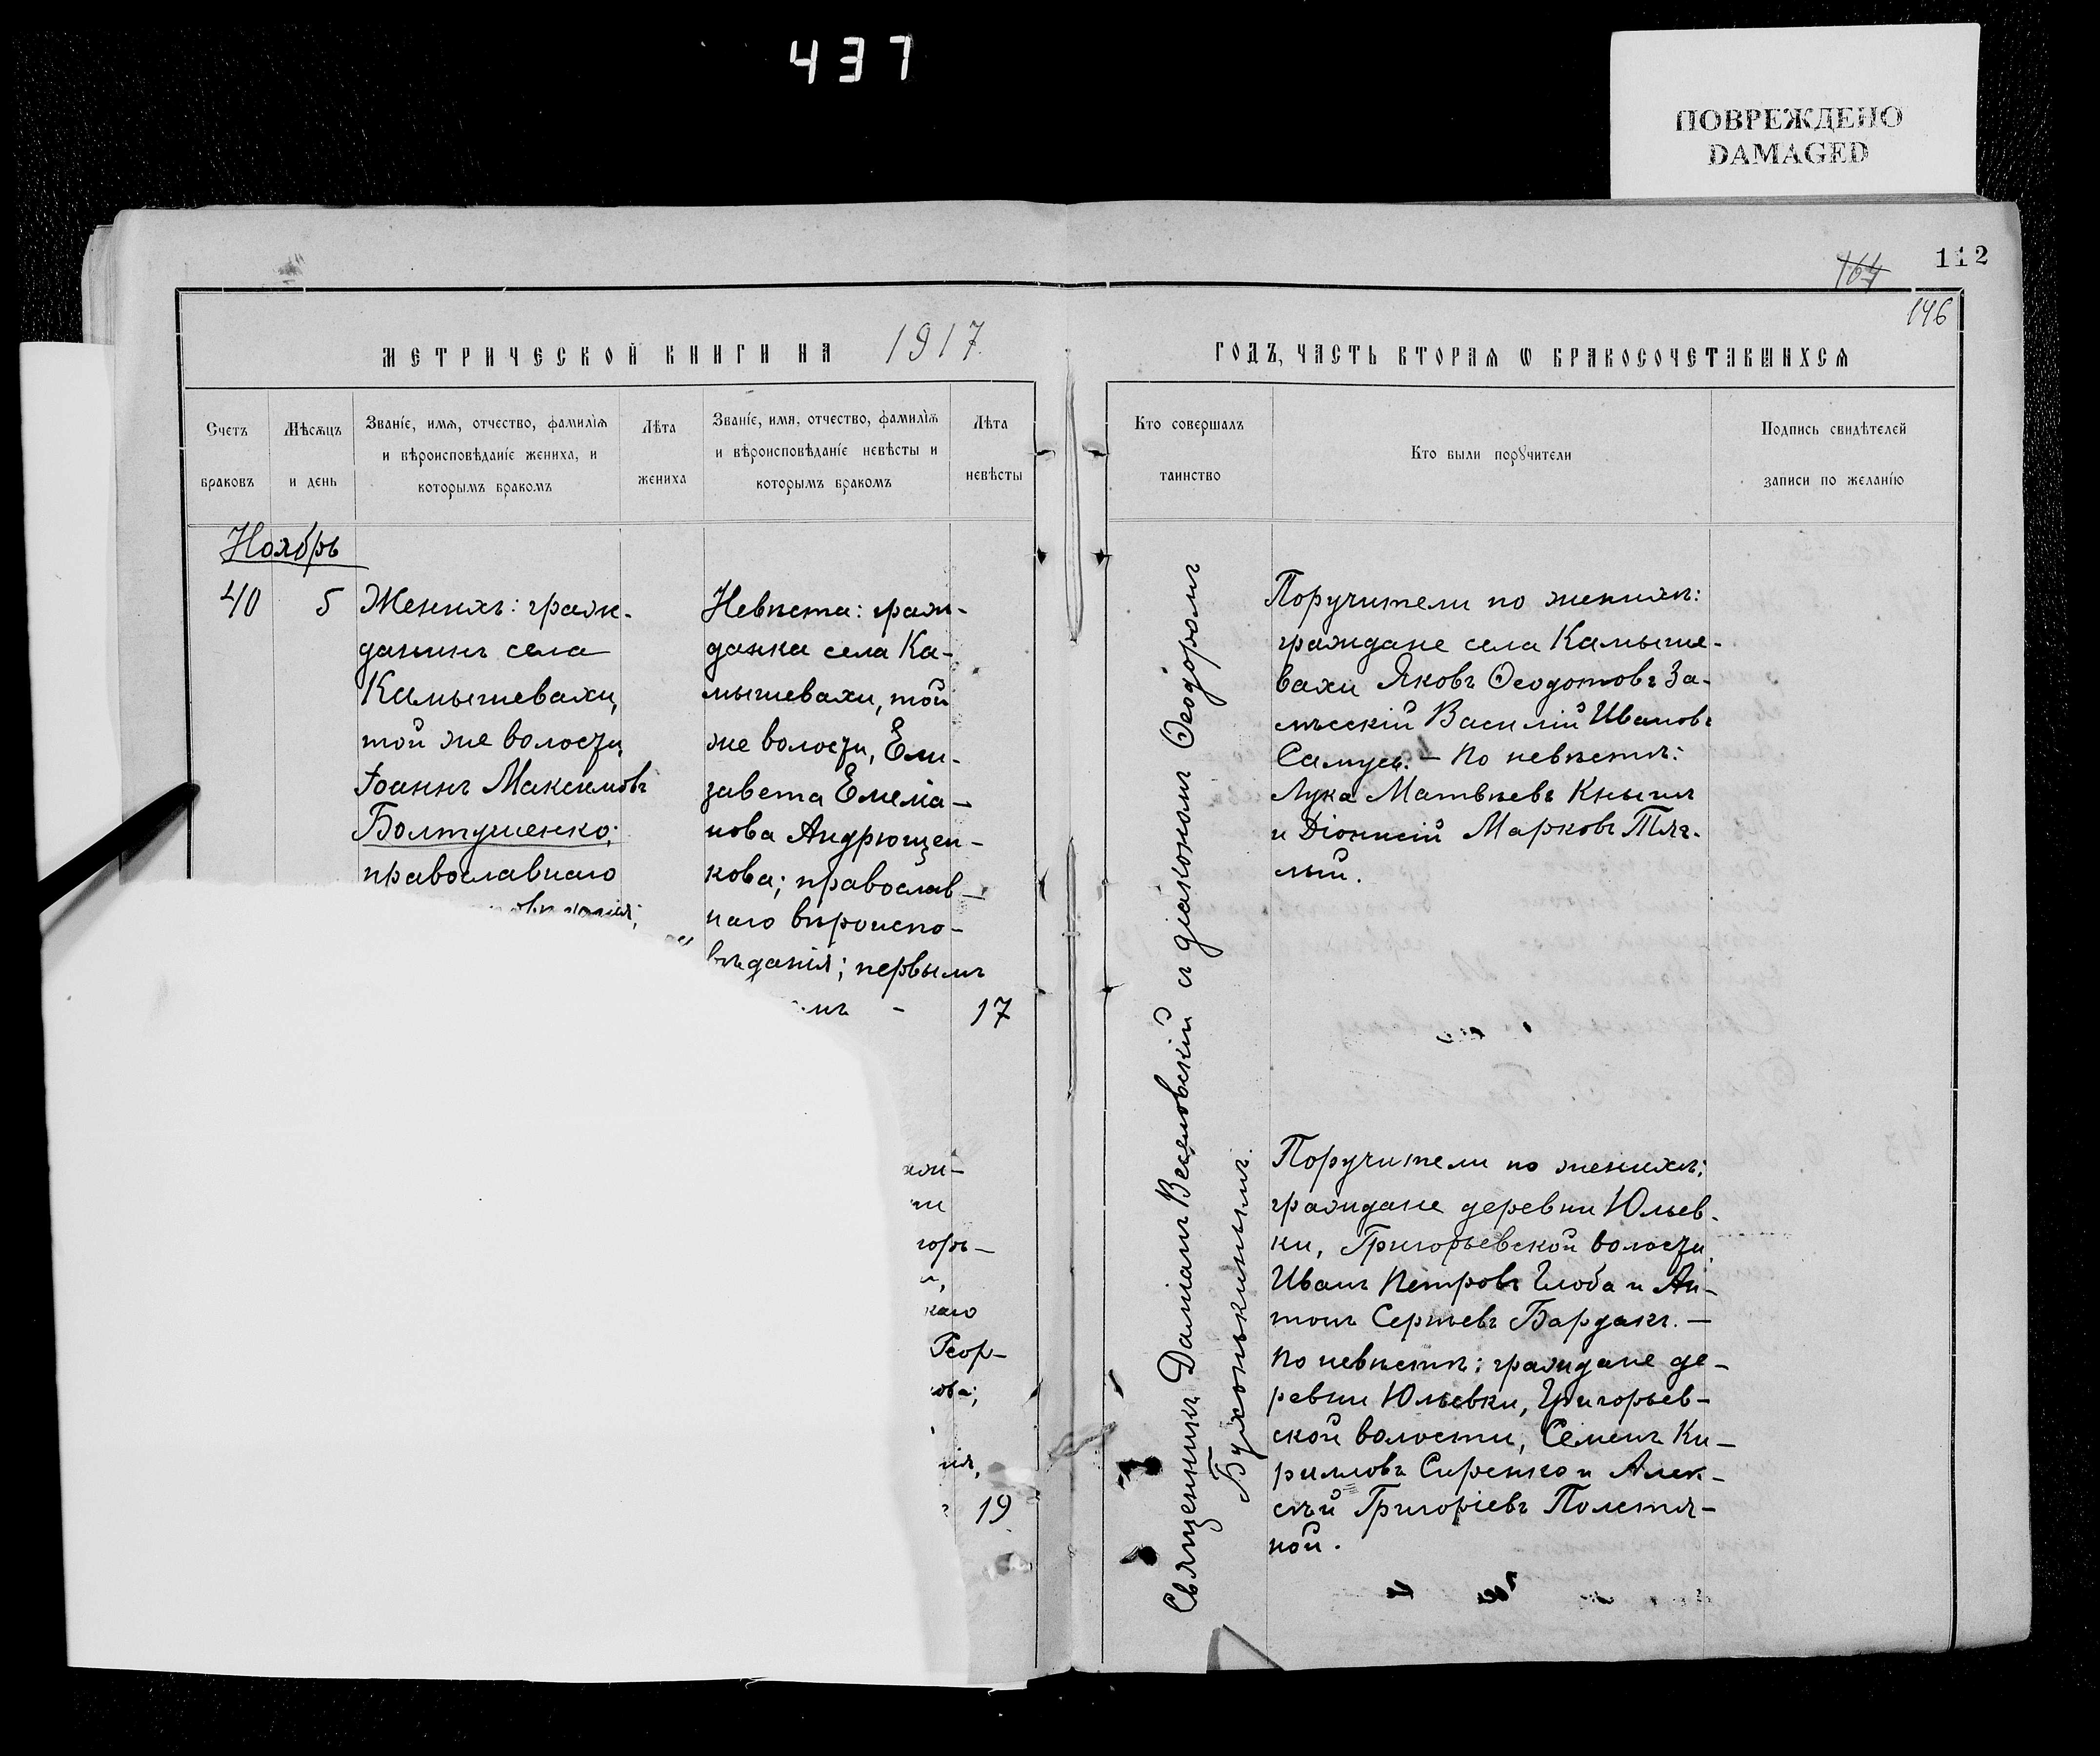 437
ПОВРЕЖДЕНО
DAMAGED
112
164
146
МЕТРИЧЕСКОЙ КНИГИ НА 1917
ГОДЪ, ЧАСТЬ ВТОРАѦ Ѡ БРАКОСОЧЕТАВШИХСѦ
Счетъ браковъ
Мѣсѧцъ и день
Званіе, имѧ, отчество, фамиліѧ
и вѣроисповѣданіе жениха, и
которымъ бракомъ
Лѣта жениха
Званіе, имѧ, отчество, фамиліѧ
и вѣроисповѣданіе невѣсты и
которымъ бракомъ
Лѣта невѣсты
Кто совершалъ таинство
Кто были порꙋчители
Подпись свидѣтелей
записи по желанію
Ноябрь
40
5
Женихъ: граж-
данинъ села
Камышевахи,
той же волости,
Іоаннъ Максимовъ
Болтушенко;
православнаго
Невѣста: граж-
данка села Ка-
мышевахи, той
же волости, Ели-
завета Емелiа-
нова Андрющен-
кова; православ-
наго вѣроиспо-
вѣданія; первымъ
17
Геор-
19
Священникъ Даміанъ Веселовскій съ діакономъ Ѳеодоромъ
Бухонькинымъ.
Поручители по женихѣ:
граждане села Камыше-
вахи Яковъ Ѳеодотовъ За-
лѣсскій Василій Ивановъ
Самусь. - По невѣстѣ:
Лука Матвѣевъ Кнышъ
и Діонисій Марковъ Тяг-
лый.
Поручители по женихѣ:
граждане деревни Юльев-
ки, Григорьевской волости,
Иванъ Петровъ Глоба и Ан-
тонъ Сергѣевъ Бардакъ. -
По невѣстѣ: граждане де-
ревни Юльевки, Григорьев-
ской волости, Семенъ Ки-
рилловъ Сиренко и Алек-
сѣй Григоріевъ Полетя-
ной.